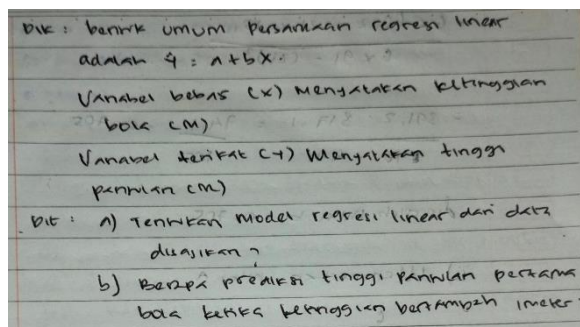 Dik : bentuk umum persamaan regresi linear
adalah ŷ = a + bx.
Variabel bebas (x) menyatakan ketinggian
bola (M)
Variabel terikat (y) menyatakan tinggi
pantulan (m)
Dit : a) Tentukan model regresi linear dari data
disajikan?
b) Berapa prediksi tinggi pantulan pertama
bola ketika ketinggian bertambah 1 meter.